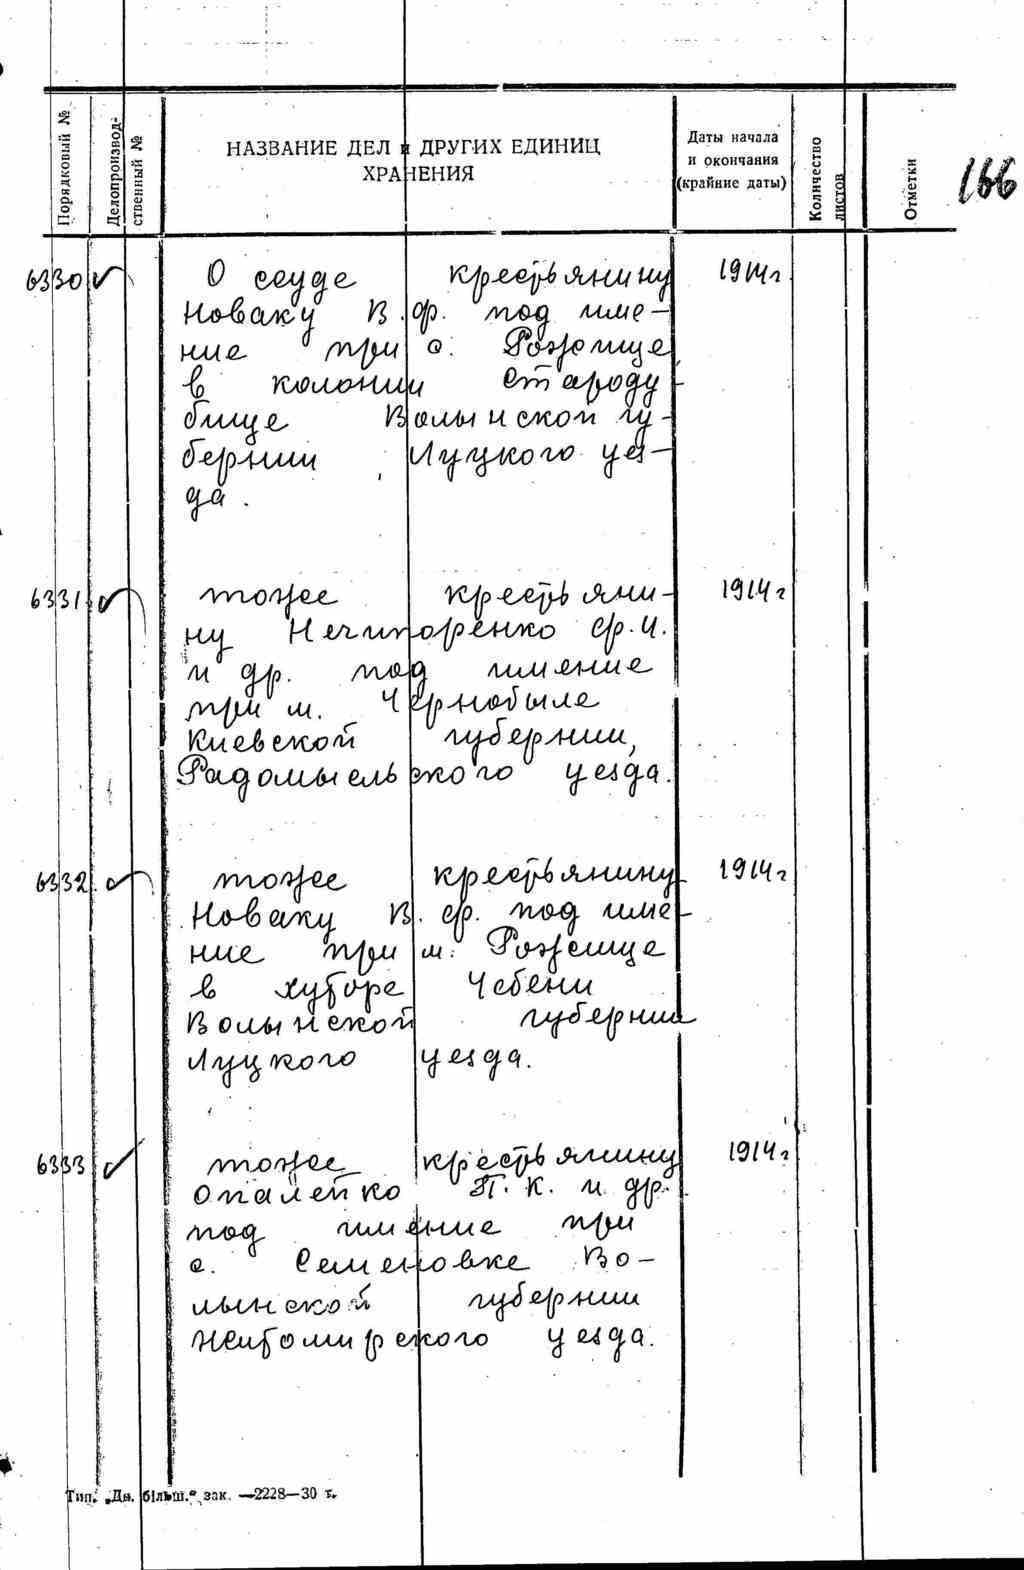 Порядковый №
Делопроизвод-
ственный №
НАЗВАНИЕ ДЕЛ И ДРУГИХ ЕДИНИЦ
ХРАНЕНИЯ
Даты начала
и окончания
(крайние даты)
Количество
листов
Отметки
166
6330 О ссуде крестьянину 1914 г
Новаку В. Ф. под име-
ние при с. Рожище
в колонии Староду-
бище Волынской гу-
бернии Луцкого уез-
да.
6331 тоже крестьяни- 1914 г
ну Нечипоренко Ф. И.
и др. под имение
при м. Чернобыле
Киевской губернии,
Радомысльского уезда.
6332 тоже крестьянину 1914 г
Новаку В. Ф. под име-
ние при м. Рожище
в хуторе Чебени
Волынской губернии
Луцкого уезда.
6333 тоже крестьянину 1914 г
Опалейко П. К. и др.
под имение при
с. Семеновке Во-
лынской губернии
Житомирского уезда.
Тип. „Дн. більш.“ зак. —2228—30 т.